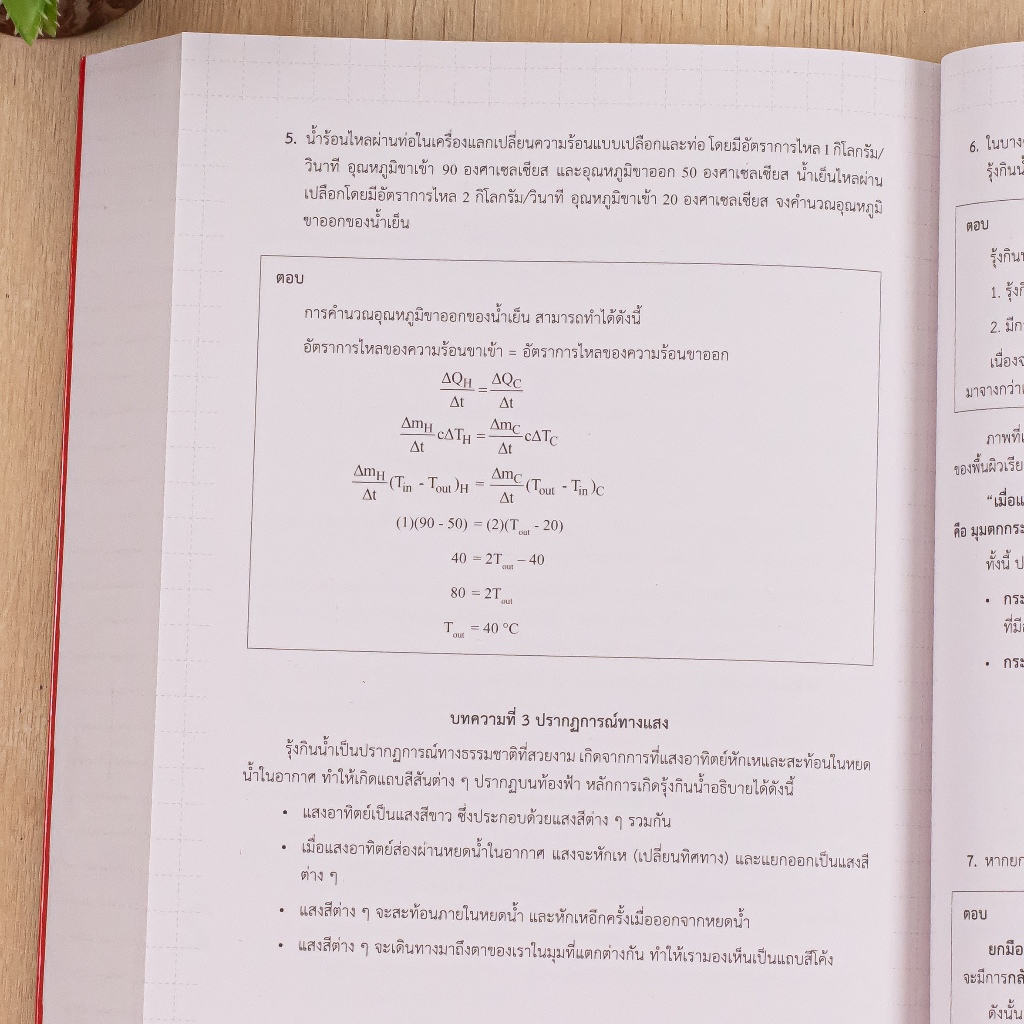 5. น้ำร้อนไหลผ่านท่อในเครื่องแลกเปลี่ยนความร้อนแบบเปลือกและท่อ โดยมีอัตราการไหล 1 กิโลกรัม/
วินาที อุณหภูมิขาเข้า 90 องศาเซลเซียส และอุณหภูมิขาออก 50 องศาเซลเซียส น้ำเย็นไหลผ่าน
เปลือกโดยมีอัตราการไหล 2 กิโลกรัม/วินาที อุณหภูมิขาเข้า 20 องศาเซลเซียส จงคำนวณอุณหภูมิ
ขาออกของน้ำเย็น
ตอบ
การคำนวณอุณหภูมิขาออกของน้ำเย็น สามารถทำได้ดังนี้
อัตราการไหลของความร้อนขาเข้า = อัตราการไหลของความร้อนขาออก
ΔQ_H/Δt = ΔQ_C/Δt
Δm_H/Δt cΔT_H = Δm_C/Δt cΔT_C
Δm_H/Δt (T_in - T_out)_H = Δm_C/Δt (T_out - T_in)_C
(1)(90 - 50) = (2)(T_out - 20)
40 = 2T_out – 40
80 = 2T_out
T_out = 40 °C
บทความที่ 3 ปรากฏการณ์ทางแสง
รุ้งกินน้ำเป็นปรากฏการณ์ทางธรรมชาติที่สวยงาม เกิดจากการที่แสงอาทิตย์หักเหและสะท้อนในหยด
น้ำในอากาศ ทำให้เกิดแถบสีสันต่าง ๆ ปรากฏบนท้องฟ้า หลักการเกิดรุ้งกินน้ำอธิบายได้ดังนี้
• แสงอาทิตย์เป็นแสงสีขาว ซึ่งประกอบด้วยแสงสีต่าง ๆ รวมกัน
• เมื่อแสงอาทิตย์ส่องผ่านหยดน้ำในอากาศ แสงจะหักเห (เปลี่ยนทิศทาง) และแยกออกเป็นแสงสี
ต่าง ๆ
• แสงสีต่าง ๆ จะสะท้อนภายในหยดน้ำ และหักเหอีกครั้งเมื่อออกจากหยดน้ำ
• แสงสีต่าง ๆ จะเดินทางมาถึงตาของเราในมุมที่แตกต่างกัน ทำให้เรามองเห็นเป็นแถบสีโค้ง
6. ในบาง
รุ้งกินน้
ตอบ
รุ้งกิน
1. รุ้ง
2. มี
เนื่อง
มาจางกว่า
ภาพที่
ของพื้นผิวเรีย
“เมื่อ
คือ มุมตกกระ
ทั้งนี้
• กระ
ที่มี
• กระ
7. หากยก
ตอบ
ยกมือ
จะมีการกลั
ดังนั้น